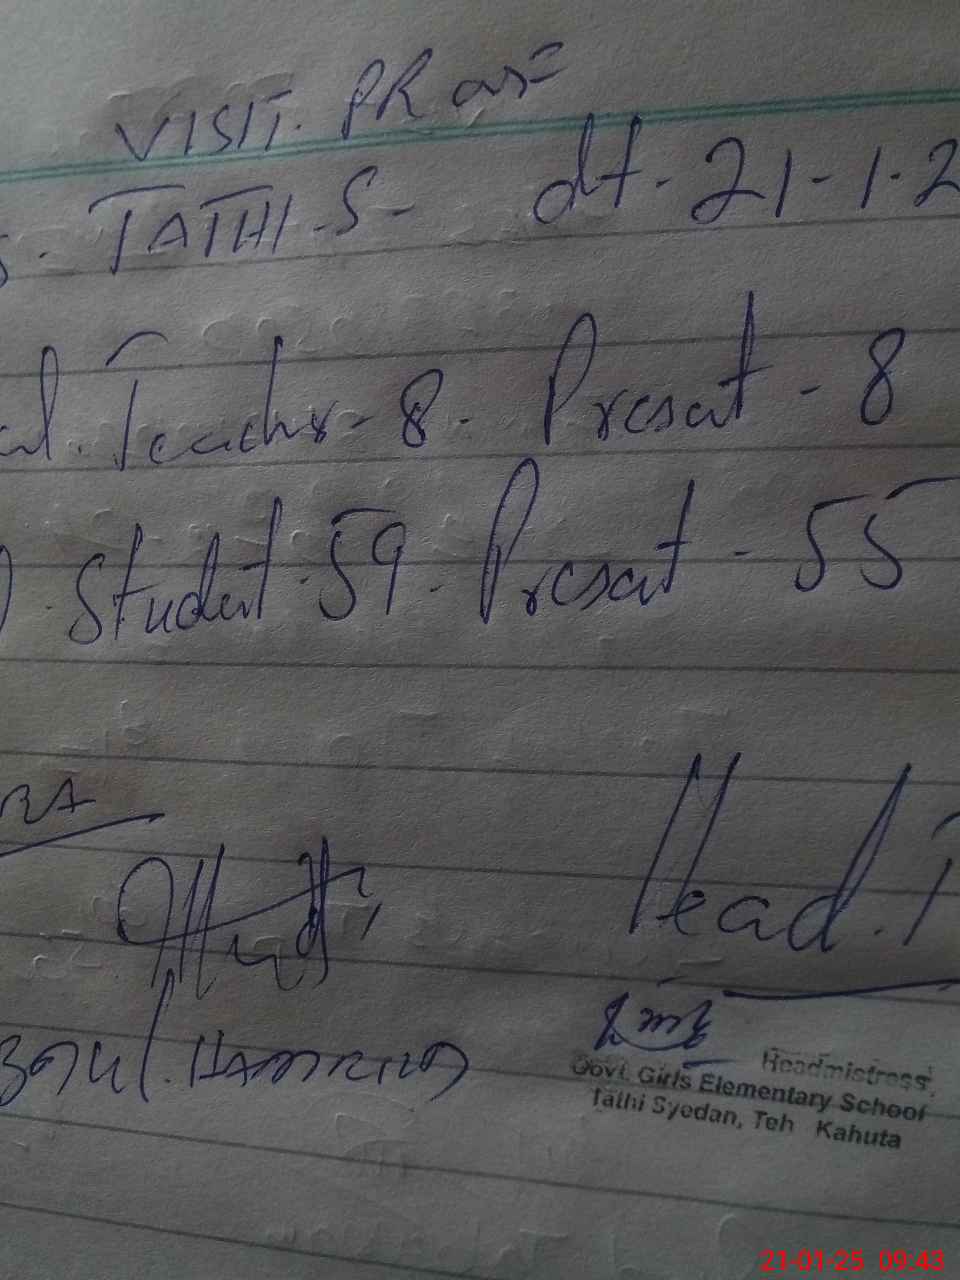 VISIT. PR
TATHI.S- dt. 21-1.2
Teacher-8. Present - 8
Student 59. Present - 55
Head.T
Headmistress,
Govt. Girls Elementary School
Tathi Syedan, Teh Kahuta
21-01-25 09:43